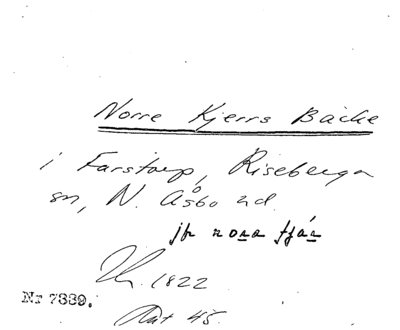 Norre Kjerrs Bäcke
i Farstorp, Riseberga
sn, N. Åsbo hd.
jfr nora kjär
1822
Nr 7889.
Akt 45.